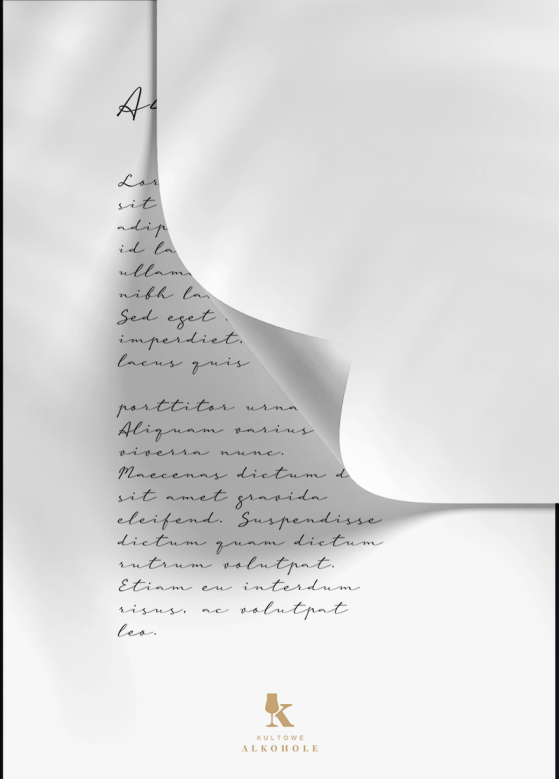 Lor
sit
adip
id la
ullam
nibh la
Sed eget
imperdiet.
lacus quis
porttitor urna
Aliquam varius
viverra nunc.
Maecenas dictum d
sit amet gravida
eleifend. Suspendisse
dictum quam dictum
rutrum volutpat.
Etiam eu interdum
risus, ac volutpat
leo.
KULTOWE
ALKOHOLE